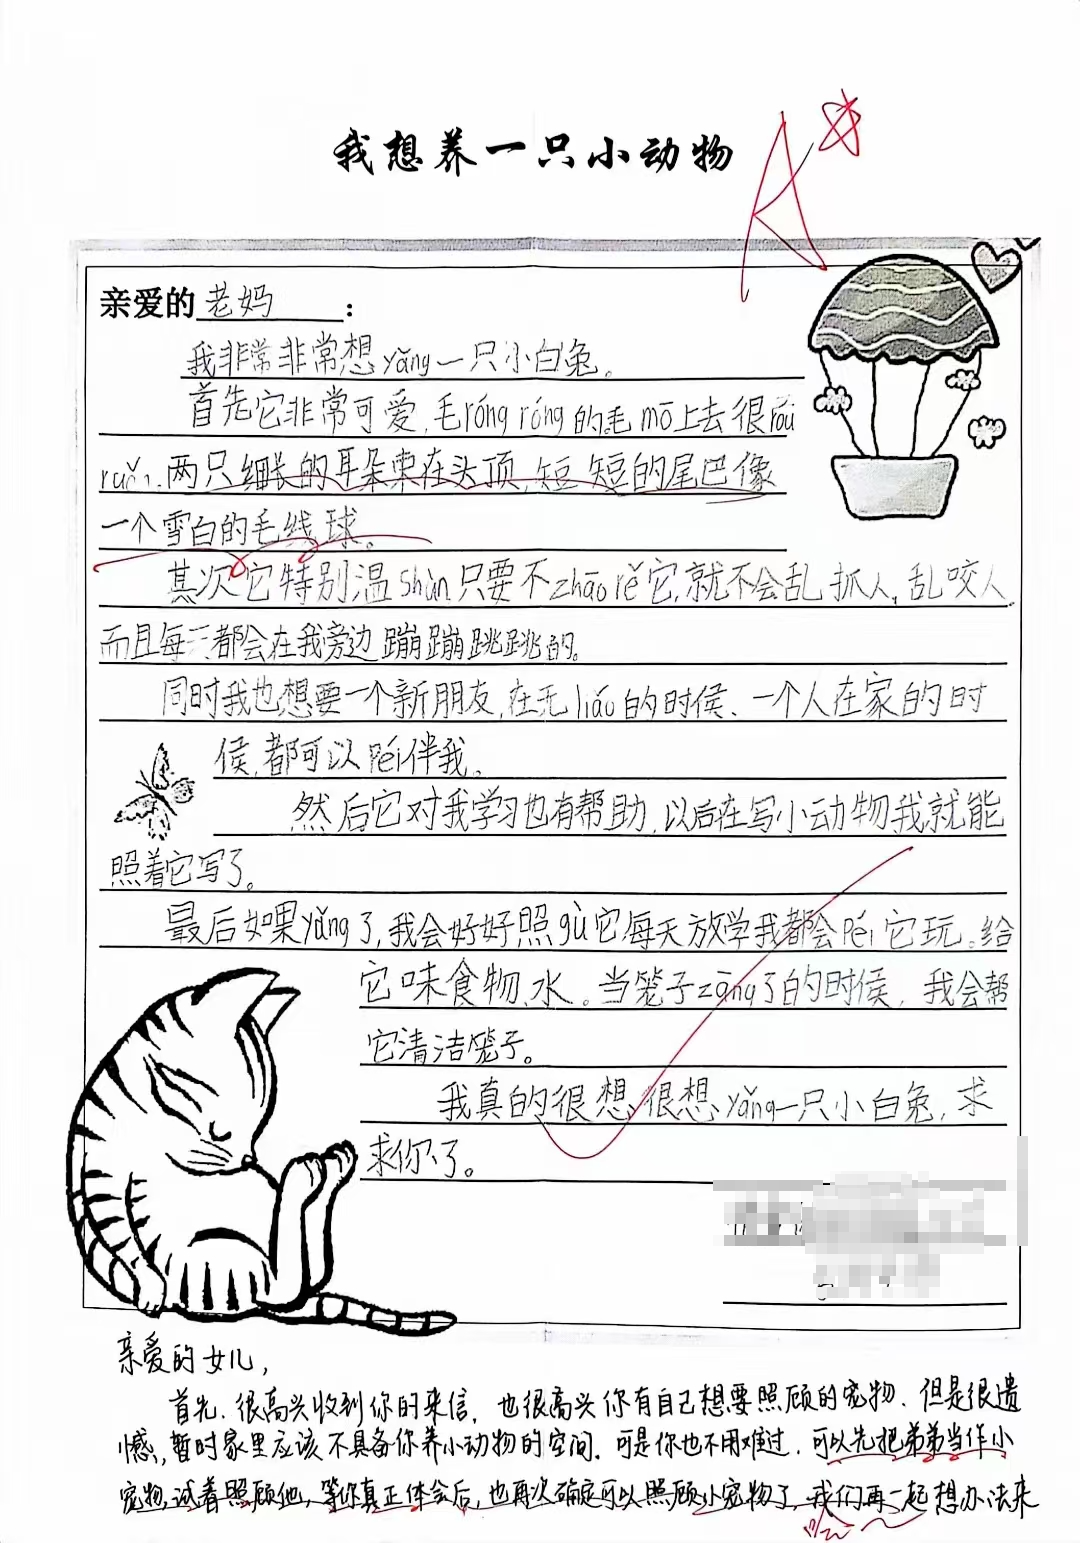 我想养一只小动物
A
亲爱的老妈：
我非常非常想yǎng一只小白兔。
首先它非常可爱，毛róng róng的毛mō上去很róu
ruǎn，两只细长的耳朵束在头顶，短短的尾巴像
一个雪白的毛线球。
其次它特别温shùn只要不zhāo rě它，就不会乱抓人，乱咬人。
而且每天都会在我旁边蹦蹦跳跳的。
同时我也想要一个新朋友，在无liáo的时候、一个人在家的时
候，都可以péi伴我。
然后它对我学习也有帮助，以后在写小动物我就能
照着它写了。
最后如果yǎng了，我会好好照gù它每天放学我都会péi它玩。给
它味食物、水。当笼子zāng了的时候，我会帮
它清洁笼子。
我真的很想、很想、yǎng一只小白兔，求
求你了。
亲爱的女儿，
首先，很高兴收到你的来信，也很高兴你有自己想要照顾的宠物．但是很遗
憾，暂时家里应该不具备你养小动物的空间．可是你也不用难过，可以先把弟弟当作小
宠物，试着照顾他，等你真正体会后，也再次确定可以照顾小宠物了，我们再一起想办法来
哈~~